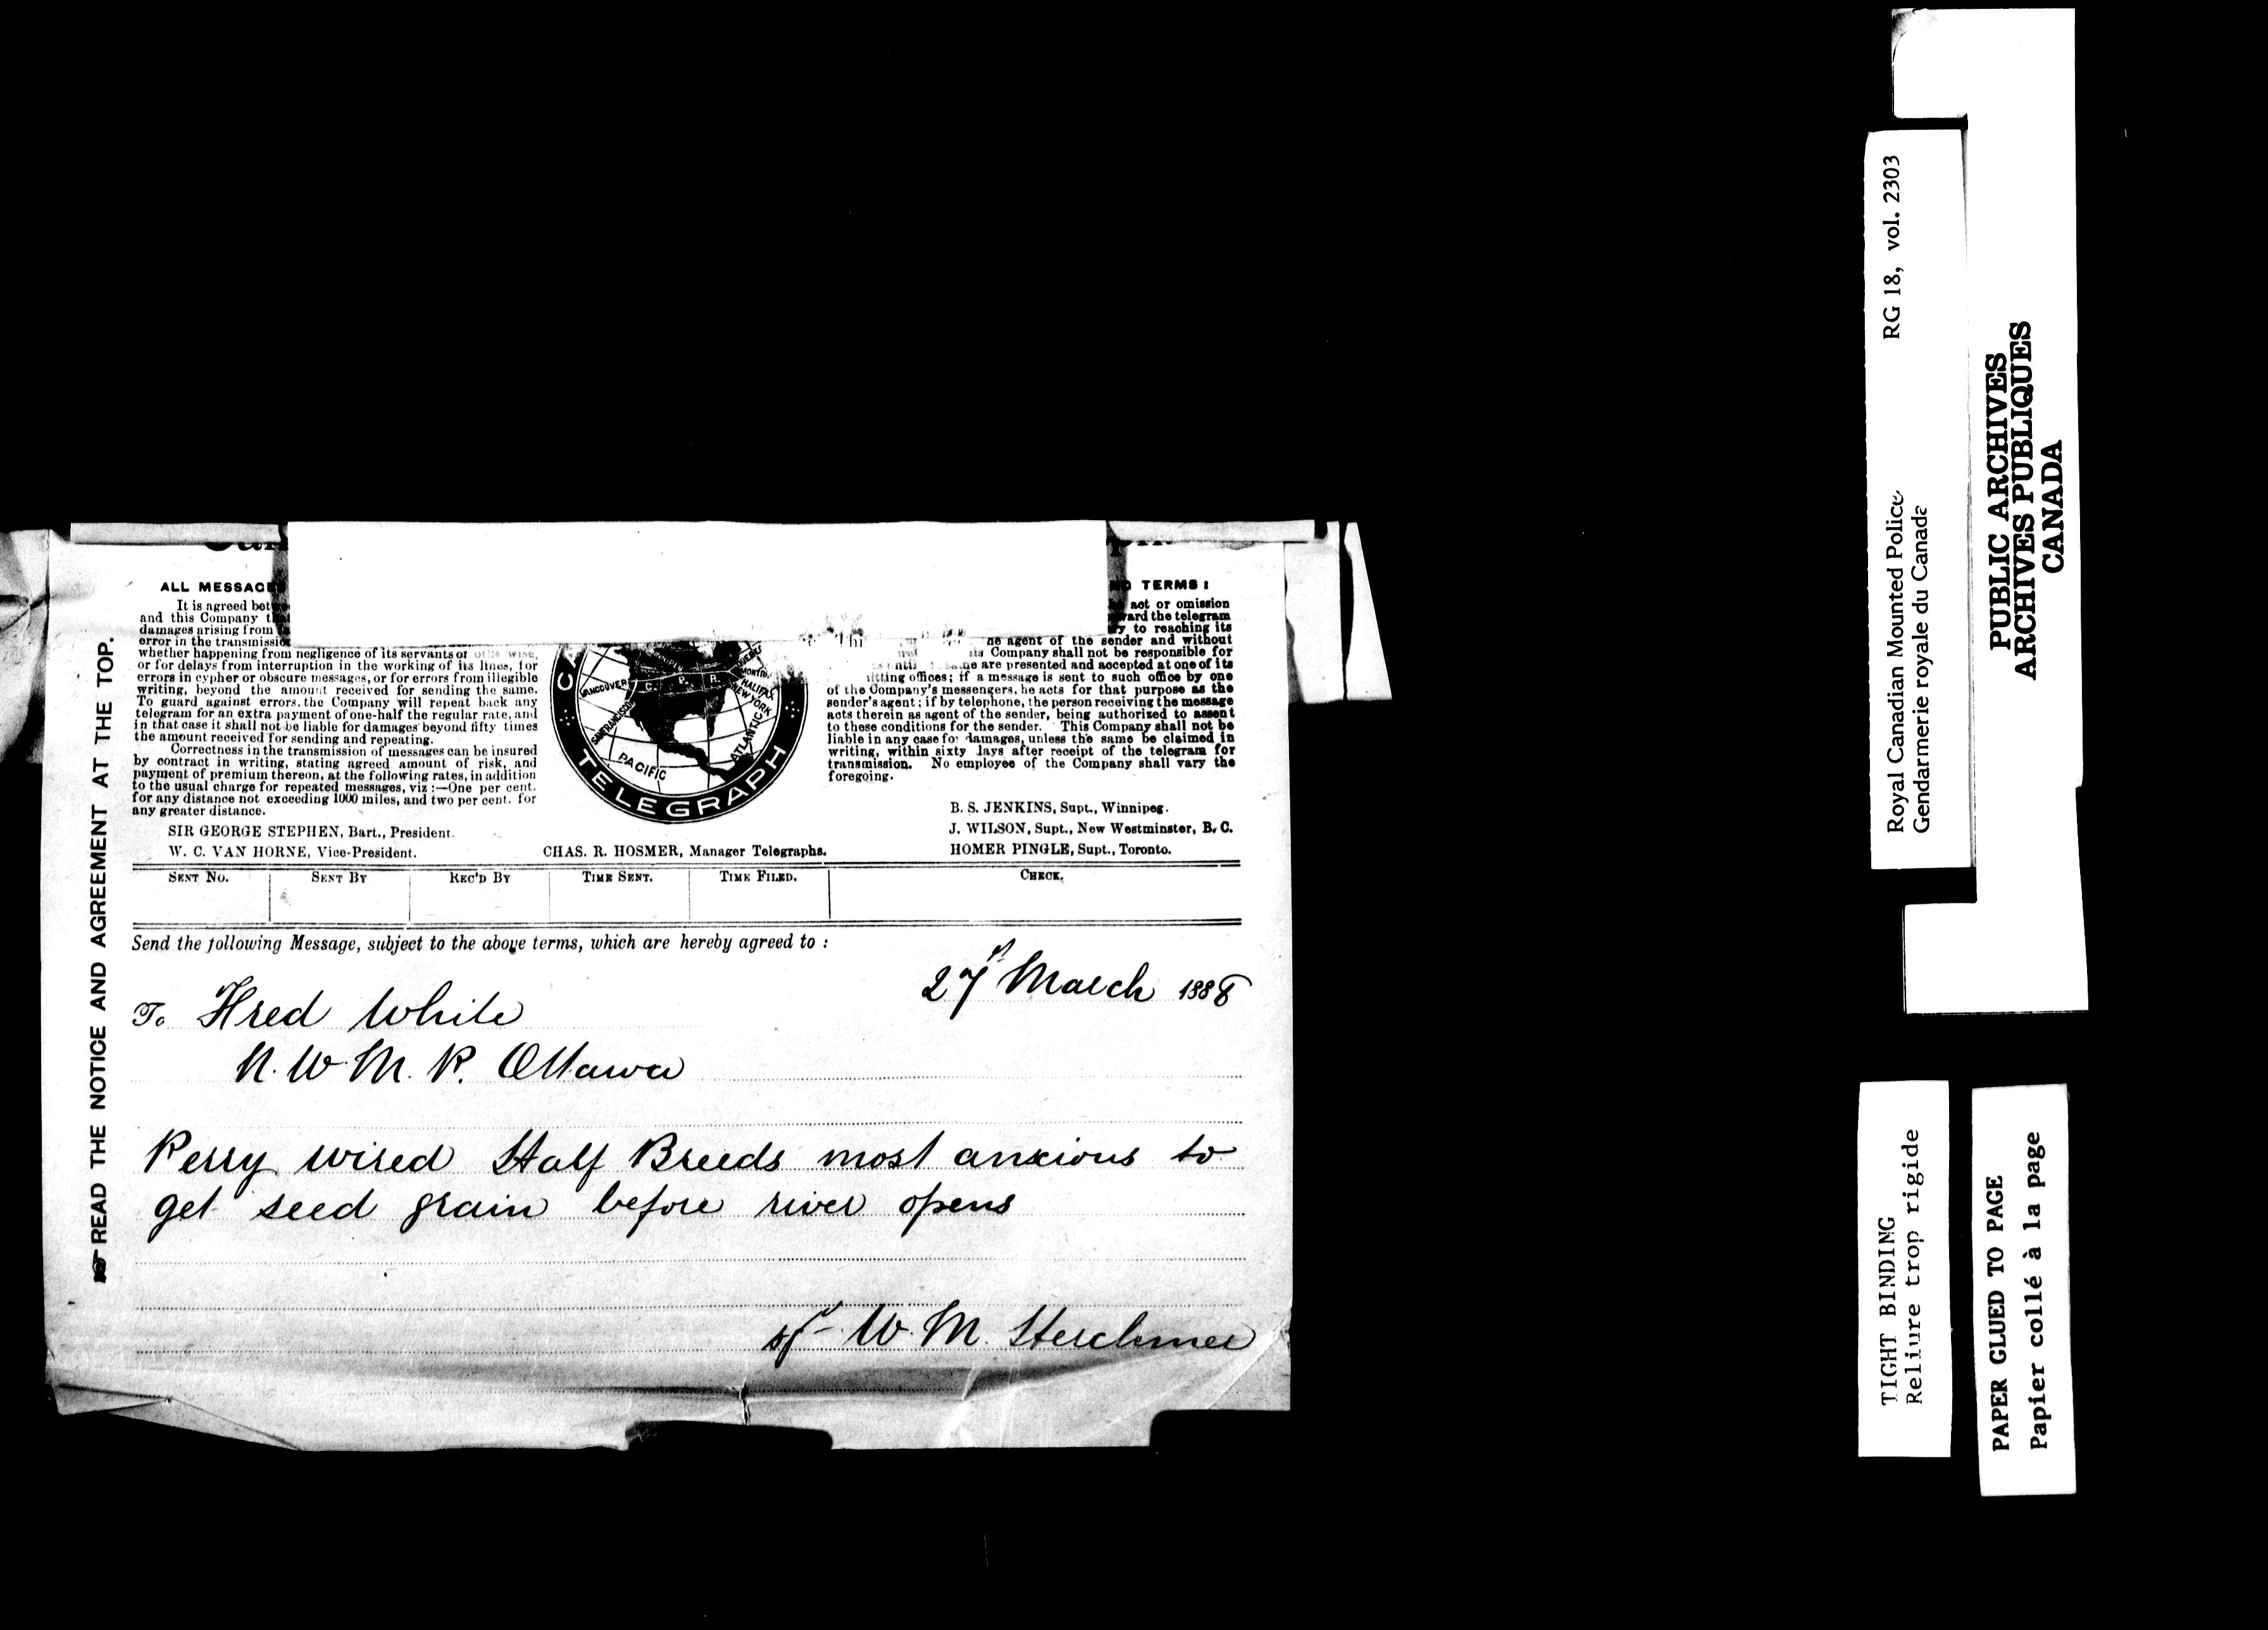 ALL MESSAG
TERMS:
It is agreed bet
and this Company
damages arising from
error in the transmissio
whether happening from negligence of its servants or wise,
or for delays from interruption in the working of its lines, for
errors in cypher or obscure messages, or for errors from illegible
writing, beyond the amount received for sending the same.
To guard against errors, the Company will repeat back any
telegram for an extra payment of one-half the regular rate, and
in that case it shall not be liable for damages beyond fifty times
the amount received for sending and repeating.
Correctness in the transmission of messages can be insured
by contract in writing, stating agreed amount of risk, and
payment of premium thereon, at the following rates, in addition
to the usual charge for repeated messages, viz:—One per cent.
for any distance not exceeding 1000 miles, and two per cent. for
any greater distance.
SIR GEORGE STEPHEN, Bart., President.
W. C. VAN HORNE, Vice-President.
TELEGRAPH
VANCOUVER
C. P. R.
MONTR
HALIFAX
NEW YORK
SAN FRANCISCO
ATLANTIC
PACIFIC
CHAS. R. HOSMER, Manager Telegraphs.
act or omission
ward the telegram
to reaching its
agent of the sender and without
Company shall not be responsible for
are presented and accepted at one of its
offices; if a message is sent to such office by one
of the Company's messengers, he acts for that purpose as the
sender's agent; if by telephone, the person receiving the message
acts therein as agent of the sender, being authorized to assent
to these conditions for the sender. This Company shall not be
liable in any case for damages, unless the same be claimed in
writing, within sixty days after receipt of the telegram for
transmission. No employee of the Company shall vary the
foregoing.
B. S. JENKINS, Supt., Winnipeg.
J. WILSON, Supt., New Westminster, B. C.
HOMER PINGLE, Supt., Toronto.
SENT NO. SENT BY REC'D BY TIME SENT. TIME FILED. CHECK.
Send the following Message, subject to the above terms, which are hereby agreed to:
27 March 1888
To Fred White
N. W. M. P. Ottawa
Perry wired Half Breeds most anxious to
get seed grain before river opens
W. M. Herchmer
READ THE NOTICE AND AGREEMENT AT THE TOP.
Royal Canadian Mounted Police RG 18, vol. 2303
Gendarmerie royale du Canada
PUBLIC ARCHIVES
ARCHIVES PUBLIQUES
CANADA
TIGHT BINDING
Reliure trop rigide
PAPER GLUED TO PAGE
Papier collé à la page